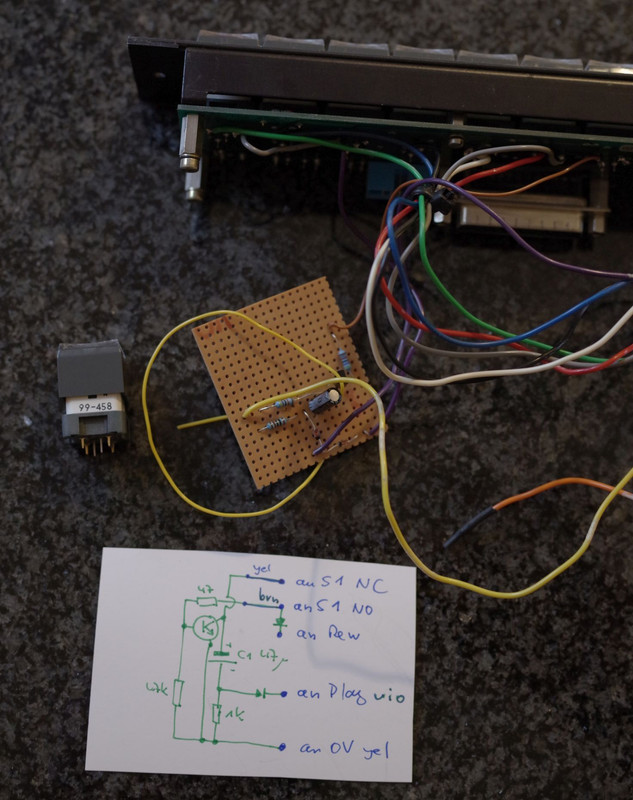 99-458
yel
an S1 NC
47
brn
an S1 NO
K1
an Rew
+
C1 47µ
-
47k
an Play vio
1k
an 0V yel